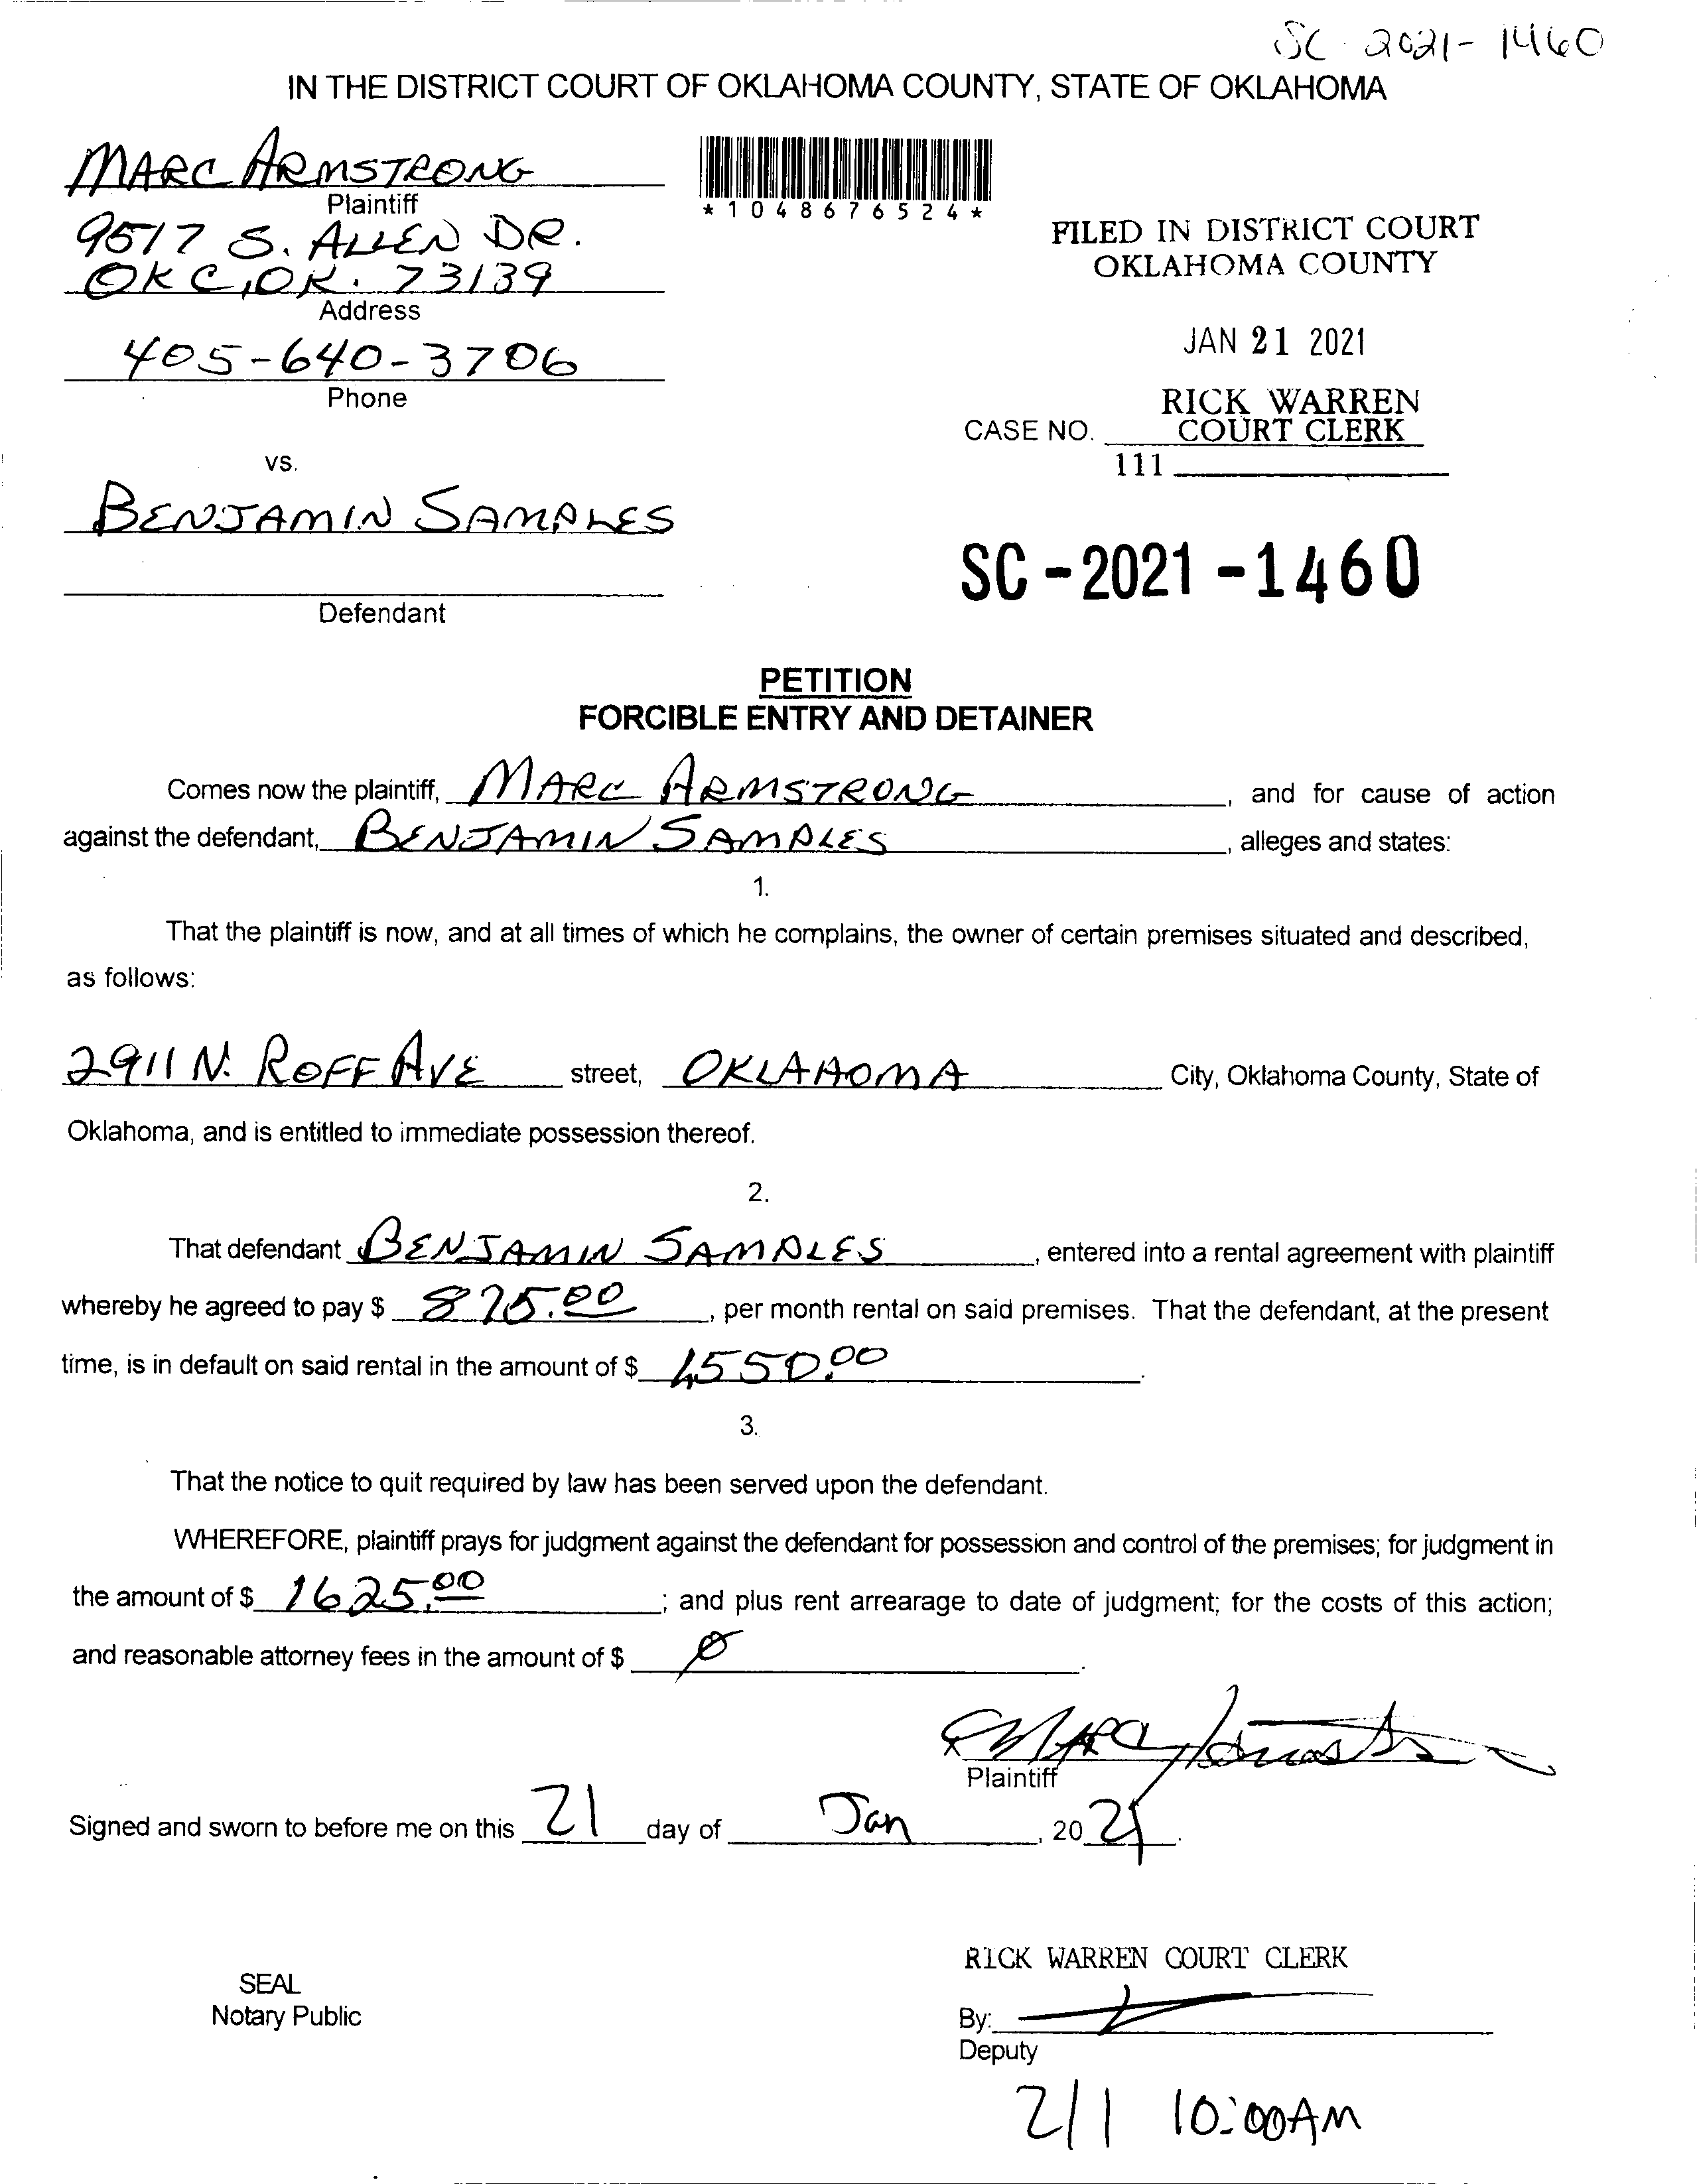 SC 2021-1460
IN THE DISTRICT COURT OF OKLAHOMA COUNTY, STATE OF OKLAHOMA
MARC ARMSTRONG
Plaintiff
9517 S. ALLEN DR.
OKC, OK. 73139
Address
405-640-3706
Phone
*1048676524*
FILED IN DISTRICT COURT
OKLAHOMA COUNTY
JAN 21 2021
RICK WARREN
CASE NO. COURT CLERK
111
vs.
BENJAMIN SAMPLES
Defendant
SC-2021-1460
PETITION
FORCIBLE ENTRY AND DETAINER
Comes now the plaintiff, MARC ARMSTRONG, and for cause of action
against the defendant, BENJAMIN SAMPLES, alleges and states:
1.
That the plaintiff is now, and at all times of which he complains, the owner of certain premises situated and described,
as follows:
2911 N. ROFF AVE street, OKLAHOMA City, Oklahoma County, State of
Oklahoma, and is entitled to immediate possession thereof.
2.
That defendant BENJAMIN SAMPLES, entered into a rental agreement with plaintiff
whereby he agreed to pay $ 875.00, per month rental on said premises. That the defendant, at the present
time, is in default on said rental in the amount of $ 1550.00.
3.
That the notice to quit required by law has been served upon the defendant.
WHEREFORE, plaintiff prays for judgment against the defendant for possession and control of the premises; for judgment in
the amount of $ 1625.00; and plus rent arrearage to date of judgment; for the costs of this action;
and reasonable attorney fees in the amount of $ Ø.
Plaintiff
Signed and sworn to before me on this 21 day of Jan, 2021.
RICK WARREN COURT CLERK
SEAL
Notary Public
By:
Deputy
2/1 10:00AM